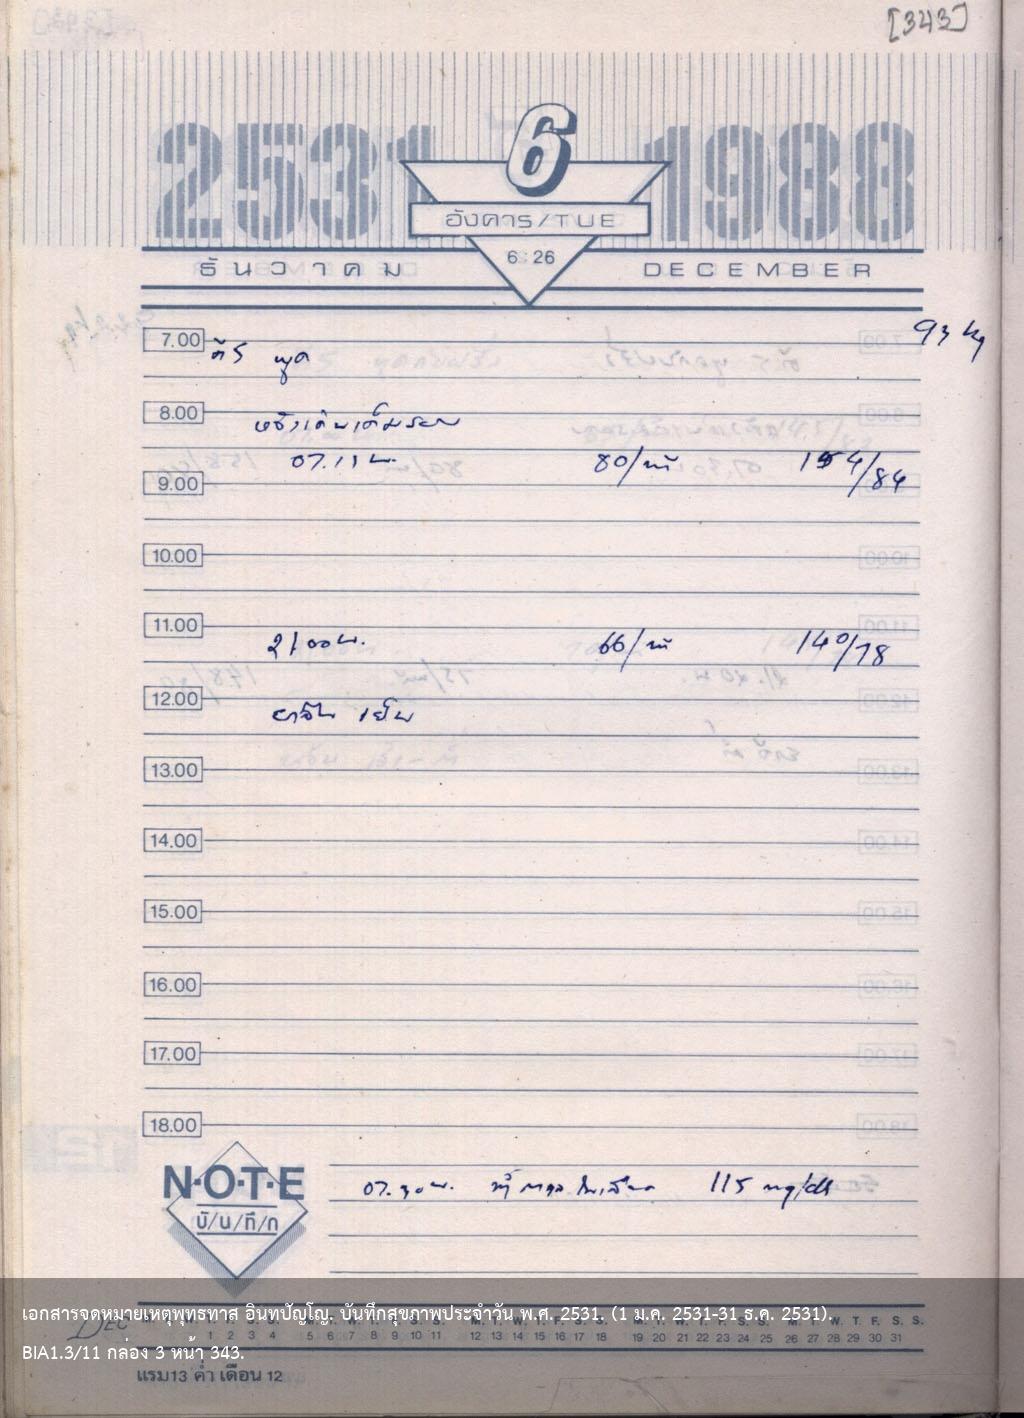 [343]
2531 1988
6
อังคาร/TUE
6 26
ธันวาคม DECEMBER
93 kg
7.00
ตี 5 พูด
8.00
07.15 น. 80/นาที 154/84
9.00
10.00
11.00
21.00 น. 66/นาที 140/78
12.00
ยาจีน เย็น
13.00
14.00
15.00
16.00
17.00
18.00
N·O·T·E
บั/น/ทึ/ก
07.30 น. น้ำตาลในเลือด 115 mg/dl
เอกสารจดหมายเหตุพุทธทาส อินทปัญโญ. บันทึกสุขภาพประจำวัน พ.ศ. 2531. (1 ม.ค. 2531-31 ธ.ค. 2531).
DEC M. T. W. T. F. S. S. M. T. W. T. F. S. S. M. T. W. T. F. S. S. M. T. W. T. F. S. S. M. T. W. T. F. S. S.
1 2 3 4 5 6 7 8 9 10 11 12 13 14 15 16 17 18 19 20 21 22 23 24 25 26 27 28 29 30 31
BIA1.3/11 กล่อง 3 หน้า 343.
แรม13 ค่ำ เดือน 12